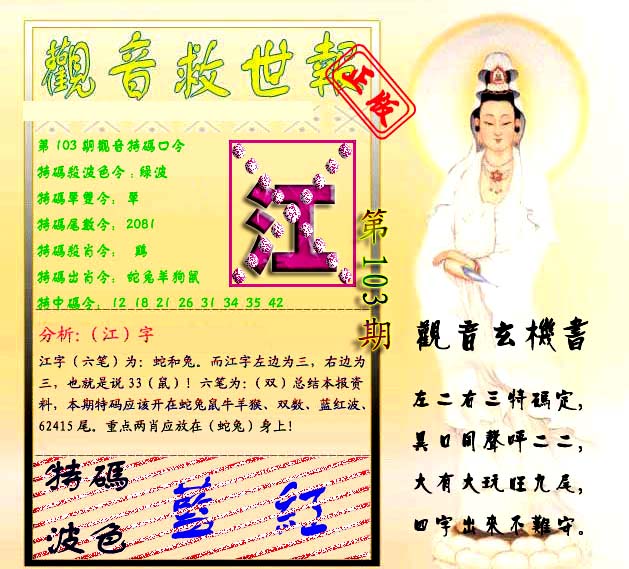 觀音救世報
正版
第103期觀音特碼口令
特碼殺波色令：綠波
特碼單雙令： 單
特碼尾數令： 2081
特碼殺肖令： 鷄
特碼出肖令： 蛇兔羊狗鼠
特中碼令： 12 18 21 26 31 34 35 42
江
第103期
分析:（江）字
江字（六笔）为：蛇和兔。而江字左边为三，右边为
三，也就是说 33（鼠）！六笔为：（双）总结本报资
料，本期特码应该开在蛇兔鼠牛羊猴、双数、蓝红波、
62415 尾。重点两肖应放在（蛇兔）身上！
特碼
波色
藍 紅
觀音玄機書
左二右三特碼定，
異口同聲呼二二，
大有大玩旺九尾，
四字出來不難守。